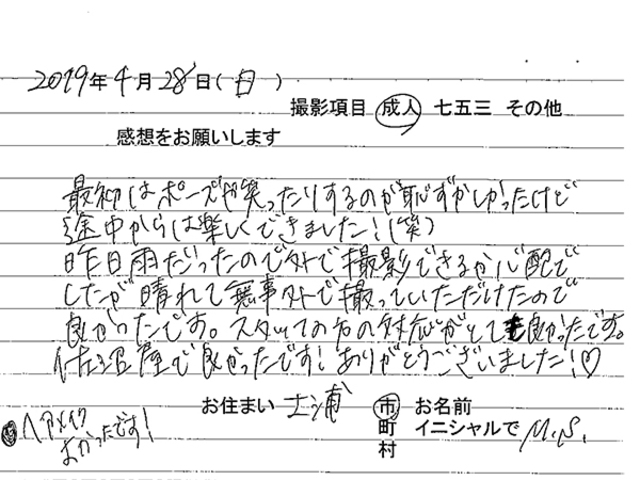 2019年4月28日(日)
撮影項目 成人 七五三 その他
感想をお願いします
最初はポーズや笑ったりするのが恥ずかしかったけど
途中からは楽しくできました!(笑)
昨日雨だったので外で撮影できるか心配で
したが晴れて無事外で撮っていただけたので
良かったです。スタッフの方の対応がとても良かったです。
佐沼屋で良かったです!ありがとうございました!♡
お住まい 土浦 市 お名前
町 イニシャルで M.S.
村
ヘアメイク
よかったです!